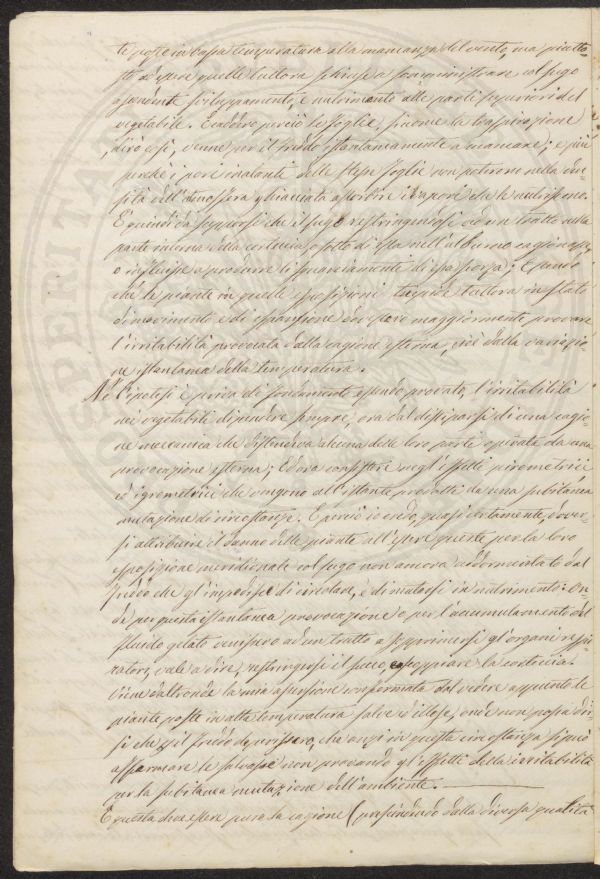 te poste in bassa temperatura alla mancanza del vento, ma piutto-
sto ad essere quelle tuttora a somministrare col sugo
ascendente sviluppamento, e nutrimento alle parti superiori del
vegetabile. perciò le foglie, siccome la traspirazione,
dirò così, venne per il freddo istantaneamente a mancare; e più
perchè i pori inalanti delle stesse foglie non poterono nella den-
sità dell'atmosfera ghiacciata assorbire i vapori che le nutrissero.
E quindi da supporsi che il sugo restringendosi ad un tratto nella
parte interna della corteccia, o sotto di essa nell'alburno cagionasse,
o influisse a produrre lo di essa scorza; Essendo
chè le piante in quelle esposizioni tiepide tuttora in stato
di movimento e di espansione dovessero maggiormente provare
l'irritabilità provocata dalla cagione esterna, cioè dalla variazio-
ne istantanea della temperatura.
Nè l'ipotesi è priva di fondamento essendo provato, l'irritabilità
nei vegetabili dipendere sempre, ora dal dissiparsi di una cagio-
ne meccanica che distendeva alcuna delle loro parti operata da una
provocazione esterna; Ed ora consistere negl'effetti pirometrici
ed igrometrici che vengono all'istante prodotti da una subitanea
mutazione di circostanze. E perciò io credo, quasi certamente, dover-
si attribuire il danno delle piante all'essere queste per la loro
esposizione meridionale col sugo non ancora addormentato dal
freddo che gl'impedisse di circolare, e di mutarsi in nutrimento: On-
de per questa istantanea provocazione o per l'accumulamento del
fluido gelato venissero ad un tratto a sopprimersi gl'organi respi-
ratori, vale a dire, restringersi il succo e scoppiare la corteccia.
Viene daltronde la mia asserzione confermata dal vedere appunto le
piante poste in alta temperatura salve ed illese, onde non possa dir-
si che il freddo deperissero, che anzi in queste circostanze si può
assicurare le salvasse non provando gl'effetti della irritabilità
per la subitanea mutazione dell'ambiente.
E questa deve essere pure la cagione (prescindendo dalla diversa qualità
PROSPERITAS